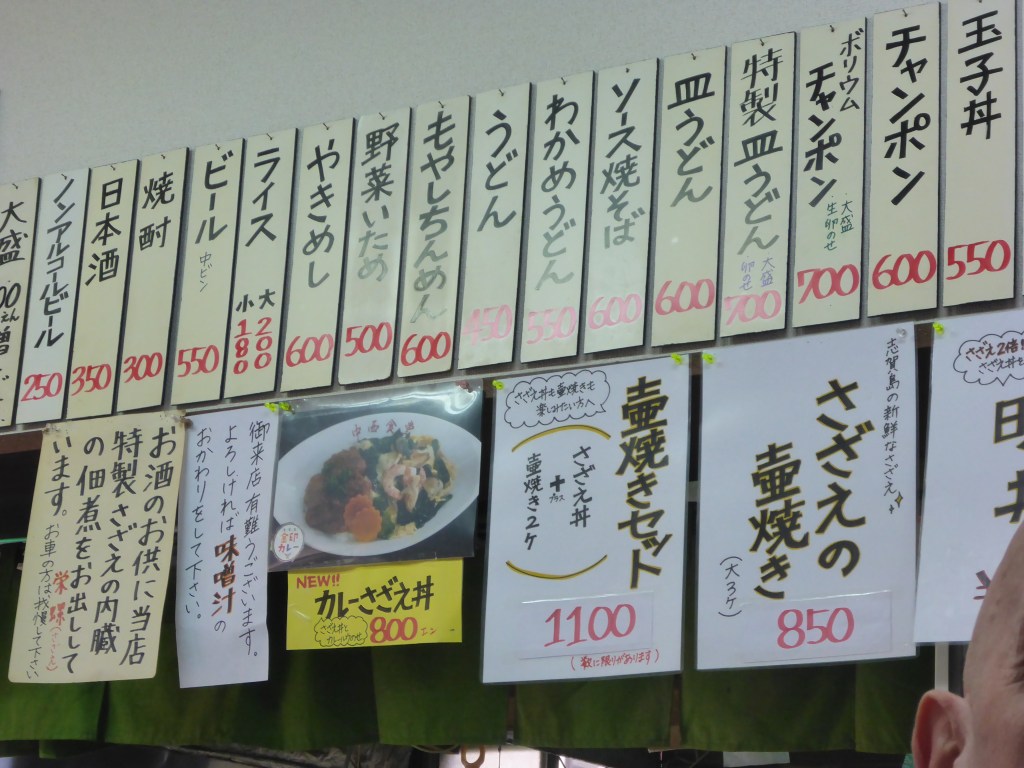 玉子丼
550
チャンポン
600
ボリウム
チャンポン
大盛
生卵のせ
700
特製皿うどん
大盛
卵のせ
700
皿うどん
600
ソース焼そば
600
わかめうどん
550
うどん
450
もやしちんめん
600
野菜いため
500
やきめし
600
ライス
大200
小180
ビール
中ビン
550
焼酎
300
日本酒
350
ノンアルコールビール
250
大盛
さざえ2倍!!
志賀島の新鮮なさざえ
さざえの
壷焼き
(大3ケ)
850
さざえ丼も壷焼きも
楽しみたい方へ
壷焼きセット
さざえ丼
+
プラス
壷焼き2ケ
1100
中西食堂
金印
カレー
NEW!!
カレーさざえ丼
さざえ丼と
800エン
御来店有難うございます。
よろしければ味噌汁の
おかわりをして下さい。
お酒のお供に当店
特製さざえの内臓
の佃煮をお出しして
います。お車の方は我慢して下さい